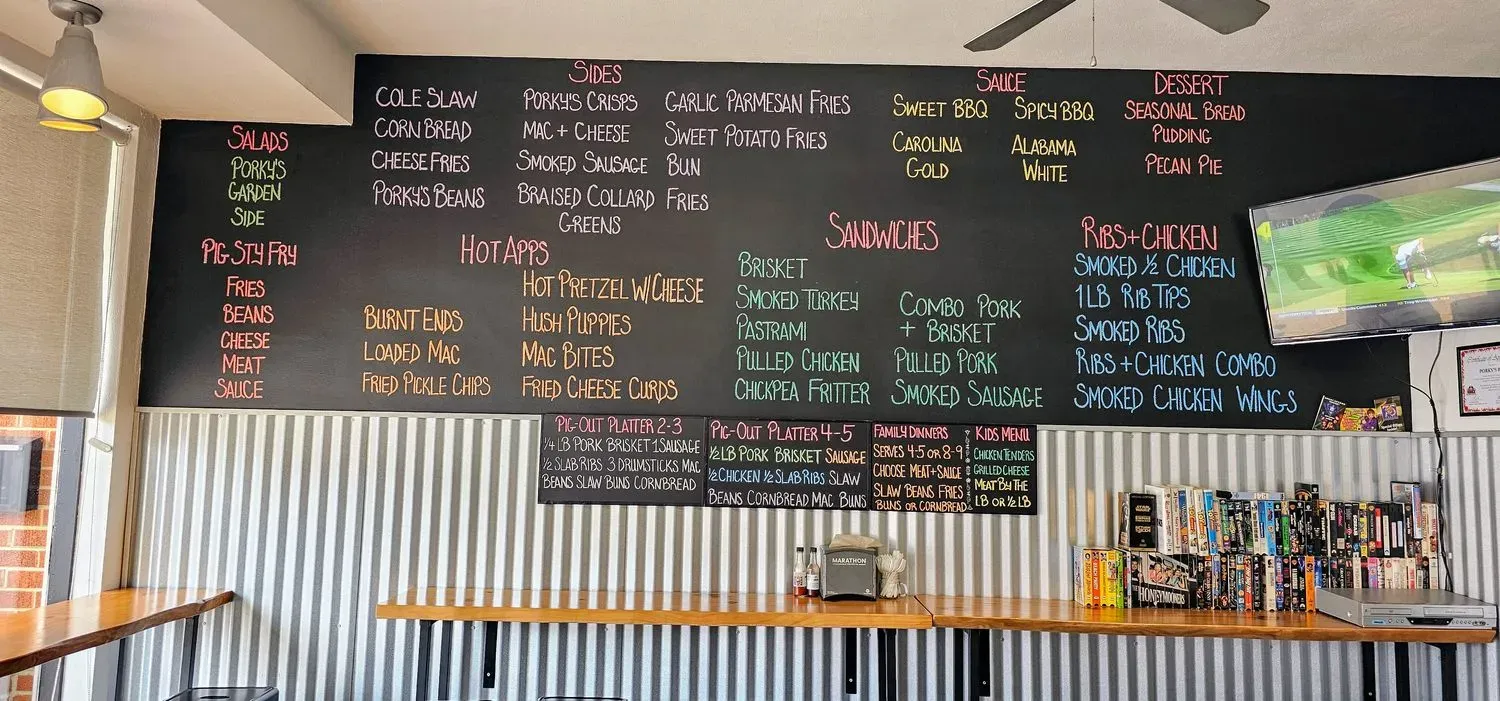 SALADS
PORKY'S
GARDEN
SIDE
PIG STY FRY
FRIES
BEANS
CHEESE
MEAT
SAUCE
SIDES
COLE SLAW
CORN BREAD
CHEESE FRIES
PORKY'S BEANS
PORKY'S CRISPS
MAC + CHEESE
SMOKED SAUSAGE
BRAISED COLLARD
GREENS
GARLIC PARMESAN FRIES
SWEET POTATO FRIES
BUN
FRIES
SAUCE
SWEET BBQ
CAROLINA
GOLD
SPICY BBQ
ALABAMA
WHITE
DESSERT
SEASONAL BREAD
PUDDING
PECAN PIE
HOT APPS
BURNT ENDS
LOADED MAC
FRIED PICKLE CHIPS
HOT PRETZEL W/CHEESE
HUSH PUPPIES
MAC BITES
FRIED CHEESE CURDS
SANDWICHES
BRISKET
SMOKED TURKEY
PASTRAMI
PULLED CHICKEN
CHICKPEA FRITTER
COMBO PORK
+ BRISKET
PULLED PORK
SMOKED SAUSAGE
RIBS + CHICKEN
SMOKED ½ CHICKEN
1LB RIB TIPS
SMOKED RIBS
RIBS + CHICKEN COMBO
SMOKED CHICKEN WINGS
PIG-OUT PLATTER 2-3
¼ LB PORK BRISKET 1 SAUSAGE
½ SLAB RIBS 3 DRUMSTICKS MAC
BEANS SLAW BUNS CORNBREAD
PIG-OUT PLATTER 4-5
½ LB PORK BRISKET SAUSAGE
½ CHICKEN ½ SLAB RIBS SLAW
BEANS CORNBREAD MAC BUNS
FAMILY DINNERS
SERVES 4-5 OR 8-9
CHOOSE MEAT + SAUCE
SLAW BEANS FRIES
BUNS OR CORNBREAD
KIDS MENU
CHICKEN TENDERS
GRILLED CHEESE
MEAT BY THE
LB OR ½ LB
MARATHON
HONEYMOONERS